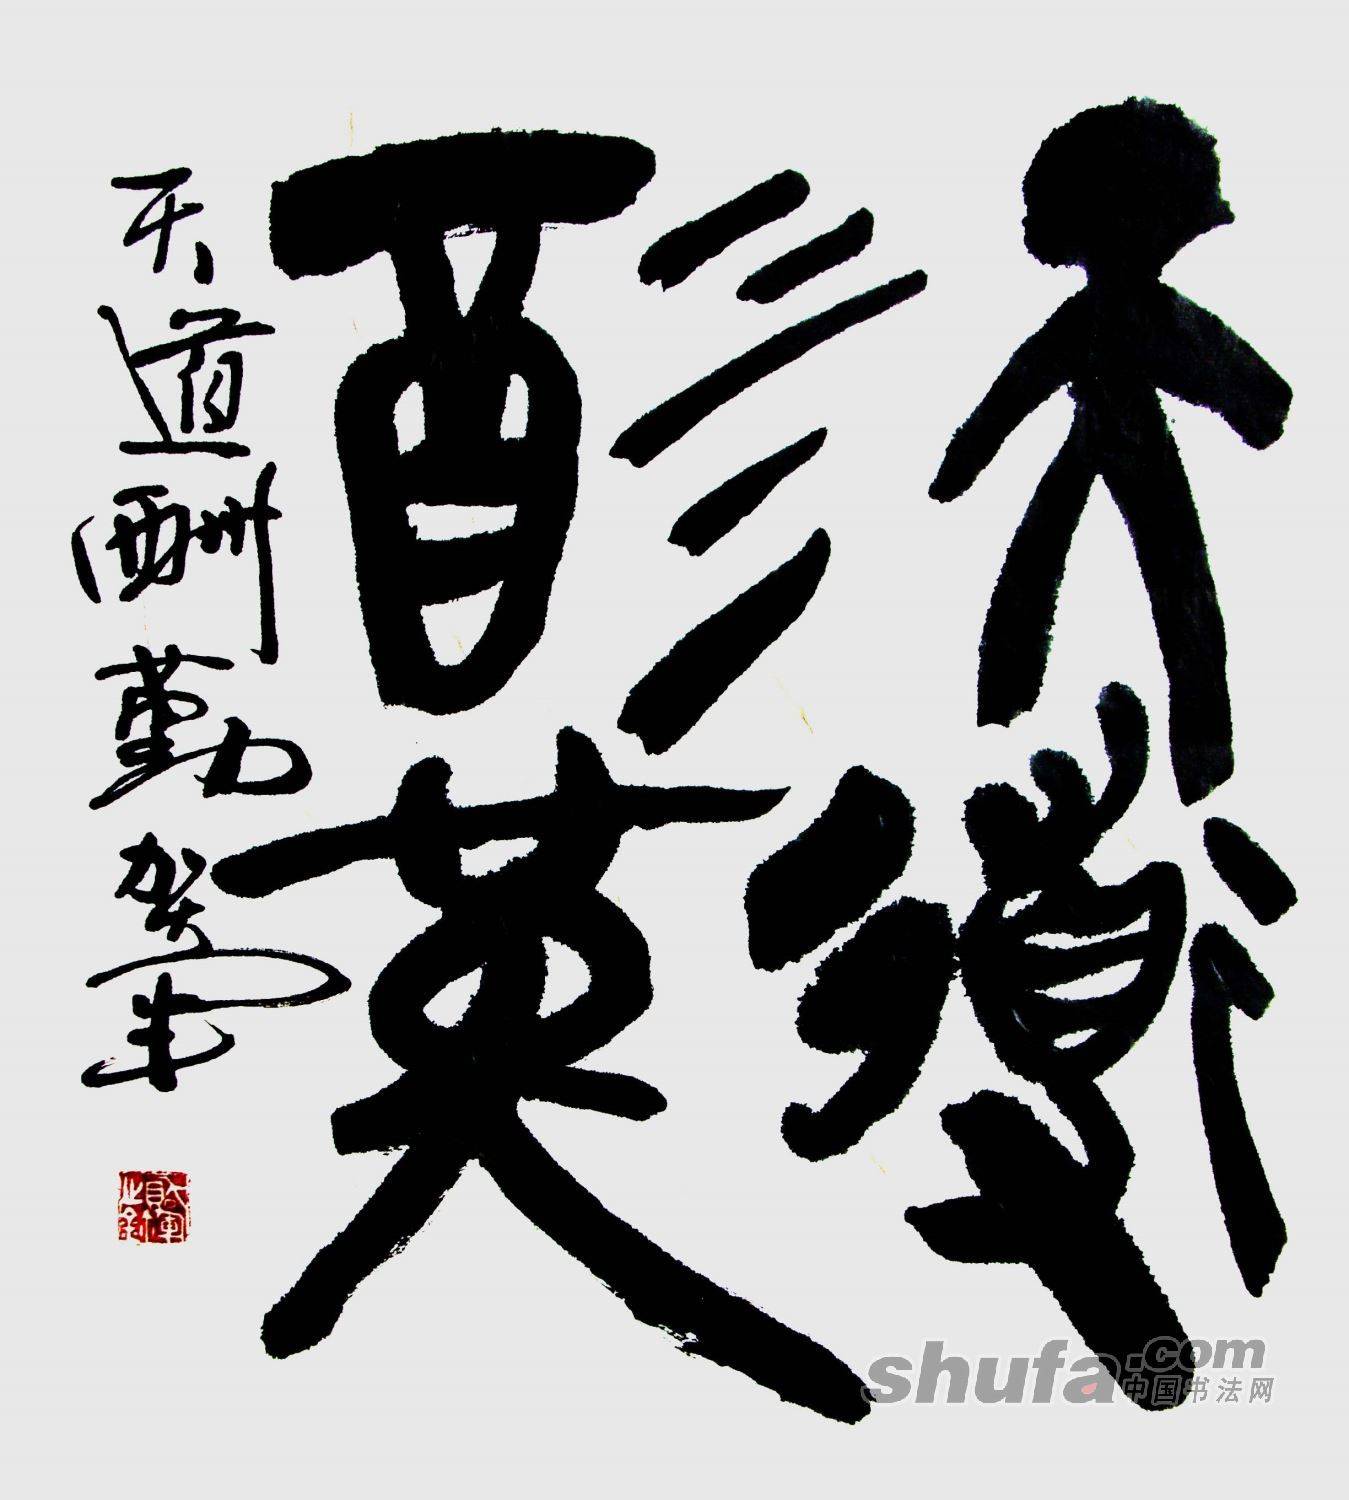 天道
酬勤
天道酬勤
shufa.com
中国书法网